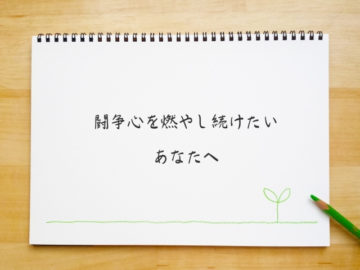 闘争心を燃やし続けたい
あなたへ